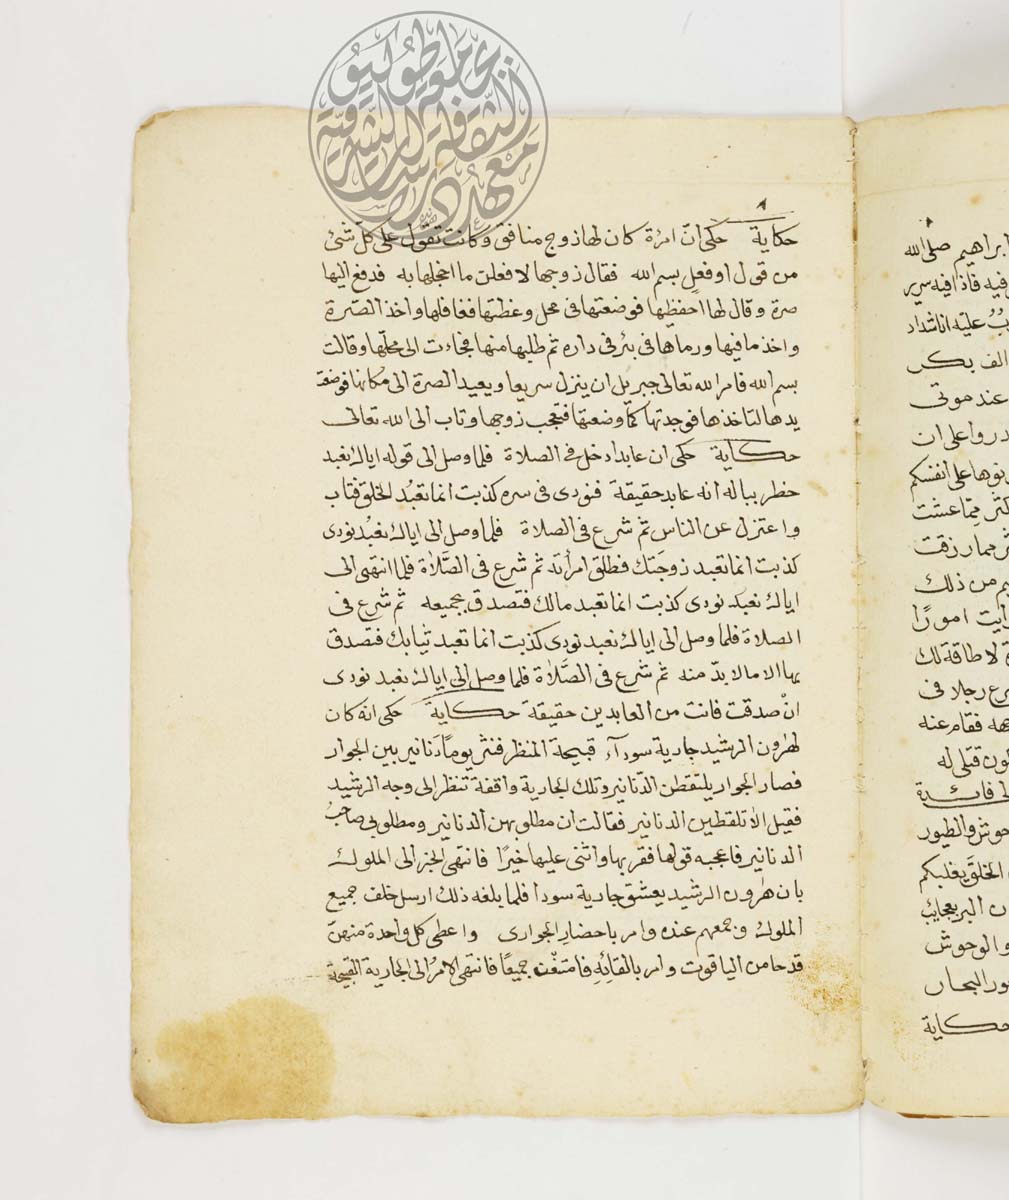 حكاية حكى ان امرأة كان لها زوج منافق وكانت تقول على كل شئ
من قول او فعل بسم الله فقال زوجها لافعلن ما اخجلها به فدفع اليها
صرة وقال لها احفظيها فوضعتها فى محل وغطتها فغافلها واخذ الصرة
واخذ ما فيها ورماها فى بئر فى داره ثم طلبها منها فجاءت الى محلها وقالت
بسم الله فامر الله تعالى جبريل ان ينزل سريعا ويعيد الصرة الى مكانها فوضعت
يدها لتاخذها فوجدتها كما وضعتها فتعجب زوجها وتاب الى الله تعالى
حكاية حكى ان عابدا دخل فى الصلاة فلما وصل الى قوله اياك نعبد
خطر بباله انه عابد حقيقة فنودى فى سره كذبت انما تعبد الخلق فتاب
واعتزل عن الناس ثم شرع فى الصلاة فلما وصل الى اياك نعبد نودى
كذبت انما تعبد زوجتك فطلق امرأته ثم شرع فى الصلاة فلما انتهى الى
اياك نعبد نودى كذبت انما تعبد مالك فتصدق بجميعه ثم شرع فى
الصلاة فلما وصل الى اياك نعبد نودى كذبت انما تعبد ثيابك فتصدق
بها الا ما لا بد منه ثم شرع فى الصلاة فلما وصل الى اياك نعبد نودى
ان صدقت فانت من العابدين حقيقة حكاية حكى انه كان
لهرون الرشيد جارية سودآء قبيحة المنظر فنثر يوما دنانير بين الجوار
فصار الجوار يلتقطن الدنانير وتلك الجارية واقفة تنظر الى وجه الرشيد
فقيل الا تلقطين الدنانير فقالت ان مطلوبهن الدنانير ومطلوبى صاحب
الدنانير فاعجبه قولها فقربها واثنى عليها خيرا فانتهى الخبر الى الملوك
بان هرون الرشيد يعشق جارية سودا فلما بلغه ذلك ارسل خلف جميع
الملوك وجمعهم عنده وامر باحضار الجوارى واعطى كل واحدة منهن
قدحا من الياقوت وامر بالقائه فامتنعن جميعا فانتهى الامر الى الجارية القبيحة
ابراهيم صلى الله
فيه فاذا فيه سرير
عليه انا شداد
الف بكر
عند موتى
على ان
على انفسكم
مما عشت
مما رزقت
من ذلك
امورا
لا طاقة لك
رجلا فى
فقام عنه
قتلى له
فائدة
والطيور
الخلق يغلبكم
البر بعجايب
والوحوش
البحار
حكاية